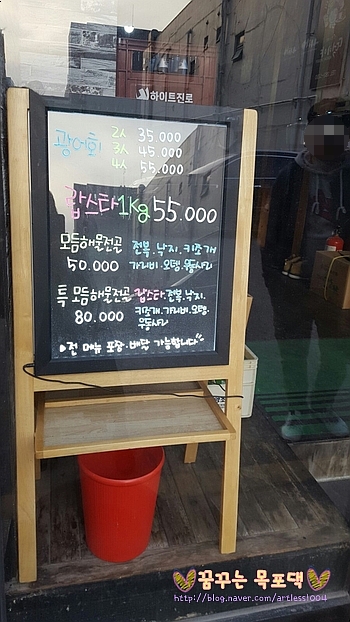 하이트진로
광어회 2人 35.000
3人 45.000
4人 55.000
랍스타1Kg 55.000
모듬해물전골 전복.낙지.키조개
50.000 가리비.오뎅.우동사리
특 모듬해물전골 랍스타.전복.낙지.
80.000 키조개.가리비.오뎅.
우동사리
전 메뉴 포장·배달 가능합니다
꿈꾸는 목포댁
http://blog.naver.com/artless1004